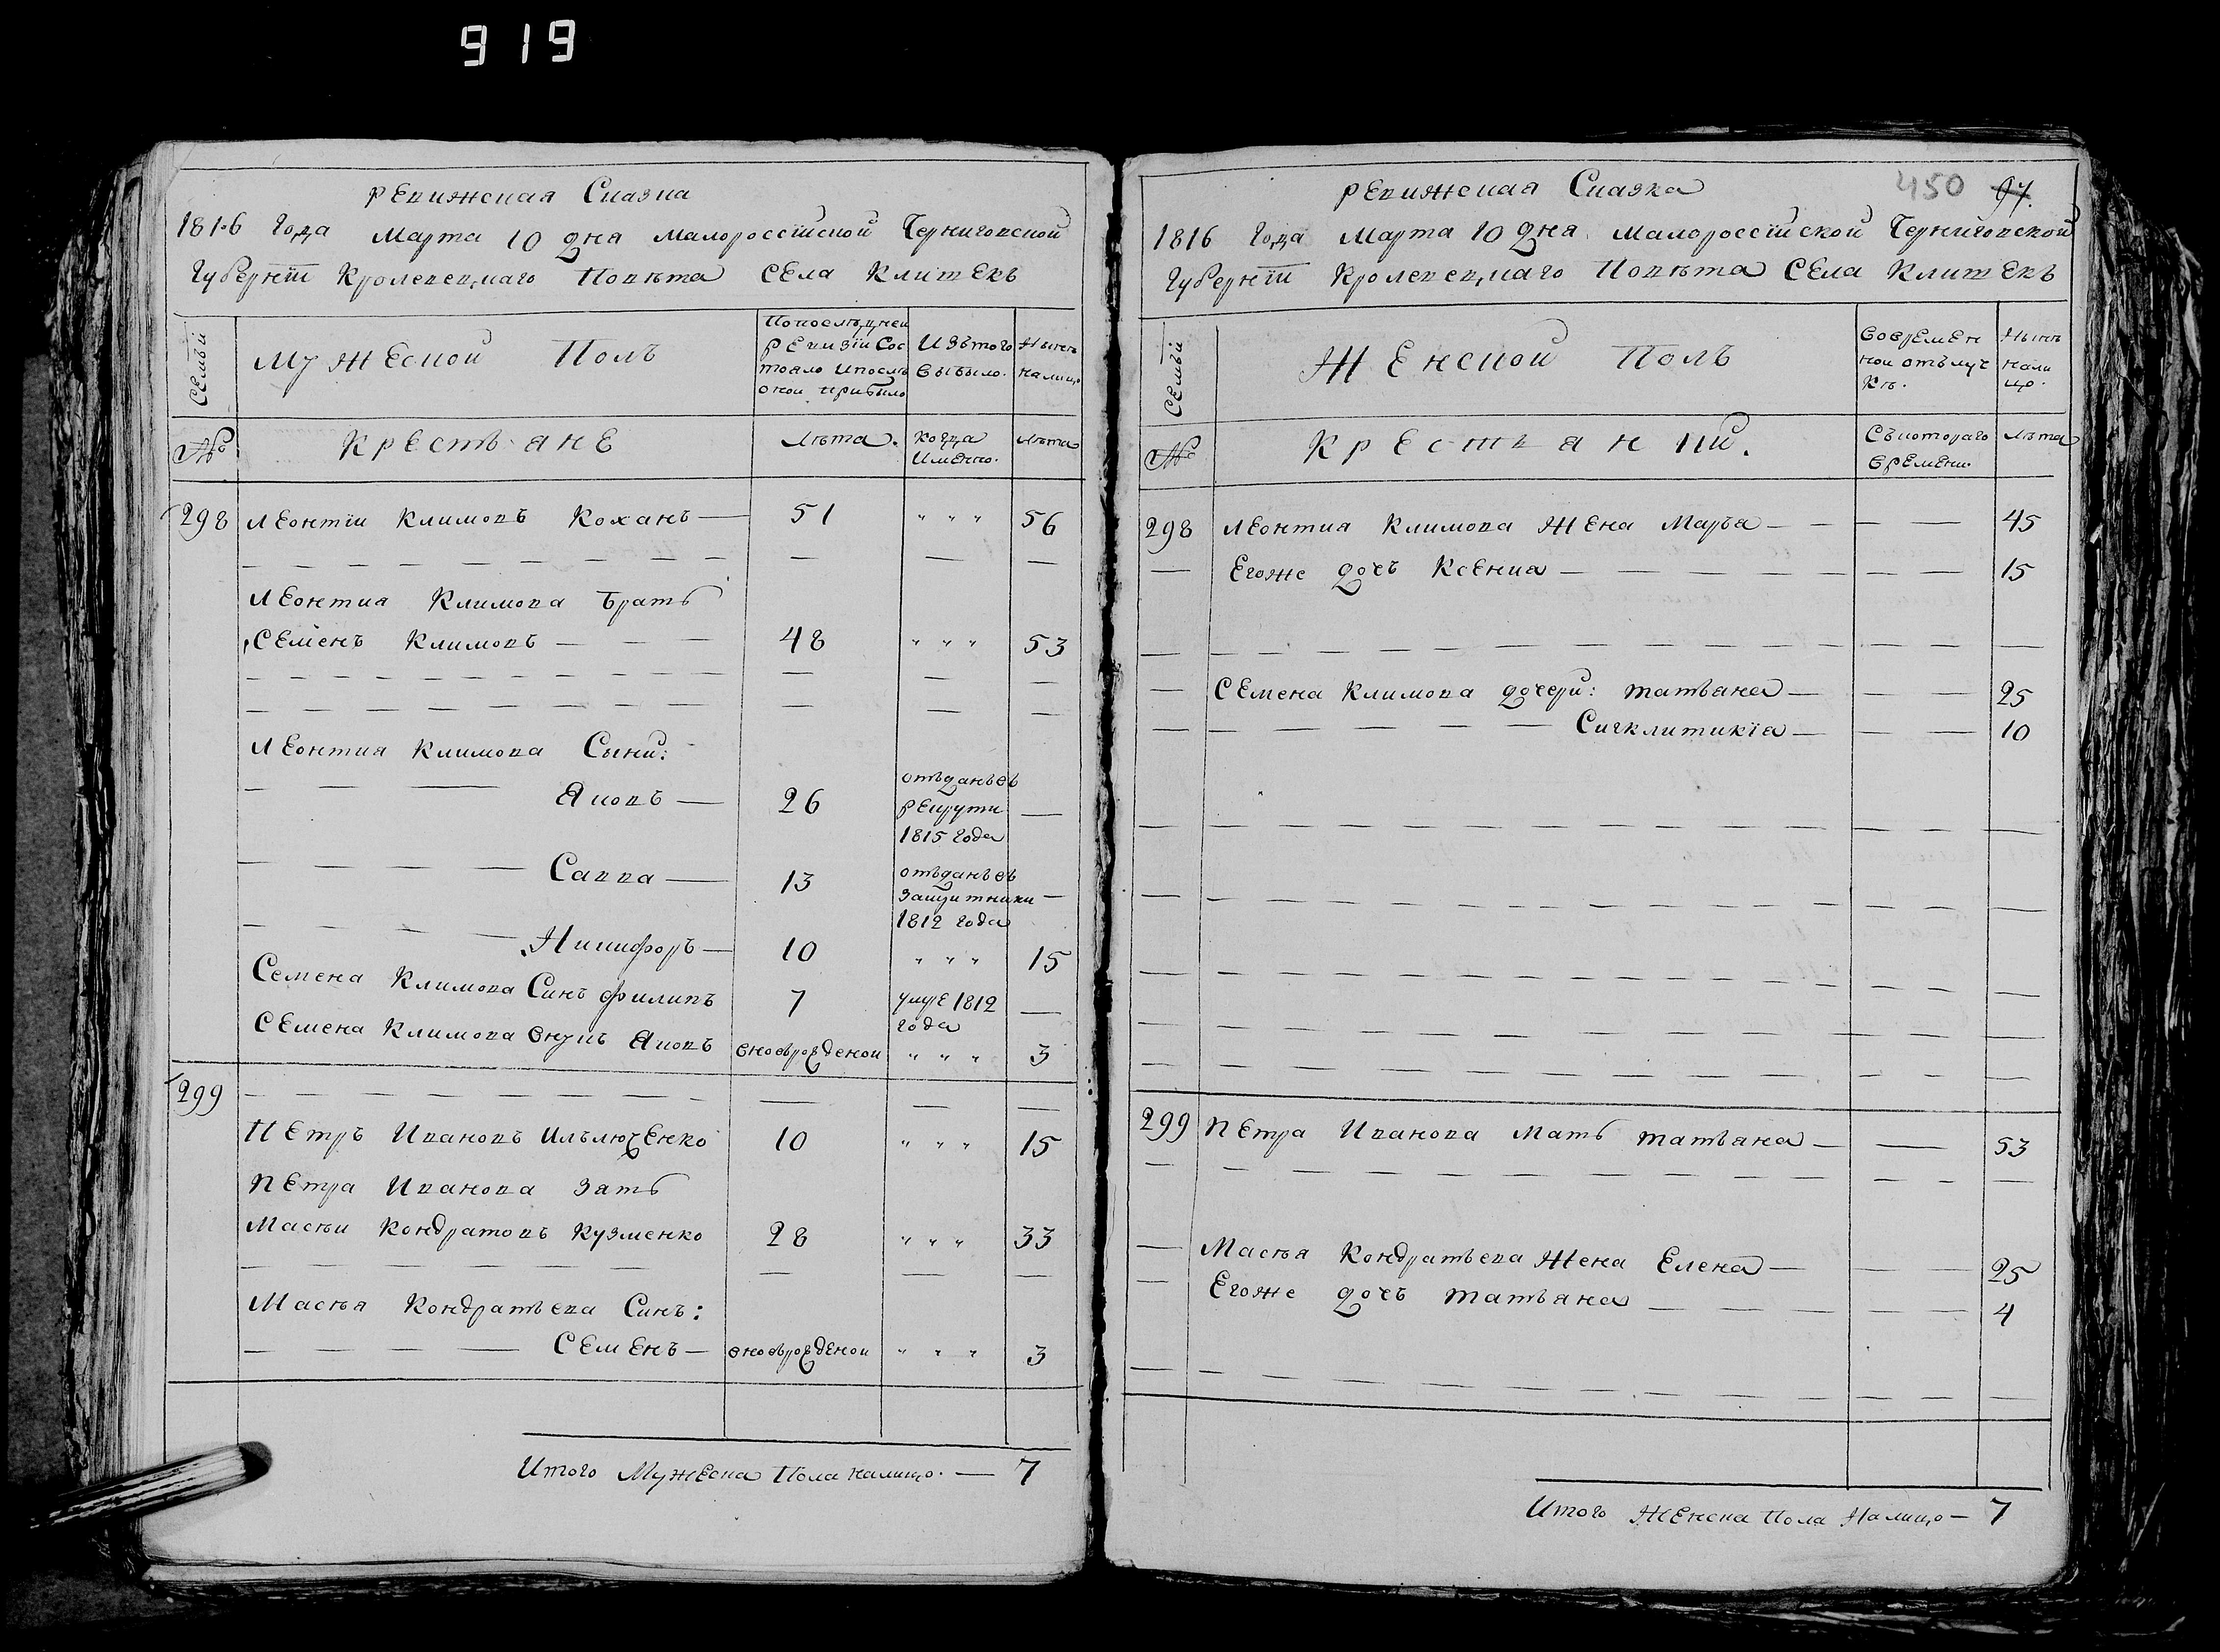 919
Ревижская Сказка
1816 Года Марта 10 дня Малороссїйской Черниговской
Губернїи Кролевецкаго Повѣта Села Клишекъ
Семьи
Мужеской Полъ
Попослѣдней
Ревизїи Сос
тояло ипослѣ
оной прибыло
Изътого
выбыло.
Нынѣ
налицо
№
Крестьяне
Лѣта.
когда
Именно.
Лѣта
298 Леонтїй Климовъ Коханъ — 51 " " " 56
Леонтия Климова Братъ
Семенъ Климовъ — 48 " " " 53
Леонтия Климова Сыни:
Яковъ — 26 отъданъвъ рекрути 1815 года —
Савва — 13 отъданъвъ защитники 1812 года —
Никифоръ — 10 " " " 15
Семена Климова Синъ филипъ 7 умре 1812 года —
Семена Климова внукъ Яковъ вновьрожденой " " " 3
299
Петръ Ивановъ Илълюченко 10 " " " 15
Петра Иванова зать
Масѣй Кондратовъ Кузменко 28 " " " 33
Масѣя Кондратьева Синъ:
Семенъ — вновьрожденой " " " 3
Итого Мужеска Пола налицо. — 7
450 97.
Ревижская Сказка
1816 Года Марта 10 дня. Малороссїйской Черниговской
Губернїи Кролевецкаго Повѣта Села Клишекъ
Семьи
Женской Полъ
Вовремен
ной отълуч
кѣ.
Нынѣ
нали
цо.
№
Крестьянки.
Съкотораго
времени.
Лѣта
298 Леонтия Климова Жена Маръа — 45
Егоже дочъ Ксения — 15
Семена Климова дочери: татьяна — 25
Сигклитикїа — 10
299 Петра Иванова Мать татьяна — 53
Масѣя Кондратьева Жена Елена — 25
Егоже дочъ татьяна — 4
Итого Женска Пола Налицо — 7